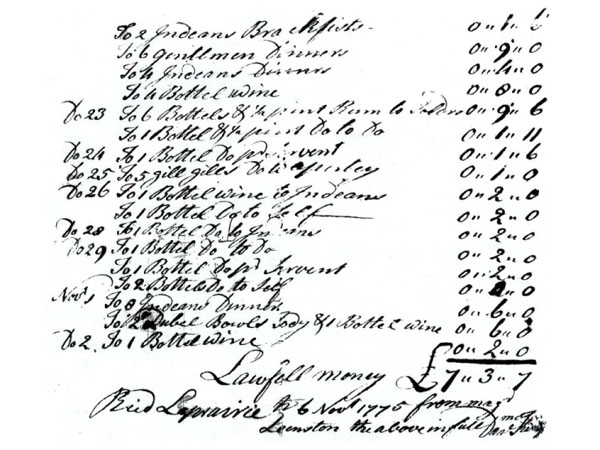 To 2 Indeans Brackfists 0 „ 1 „
To 6 Gentlmen Dinners 0 „ 9 „ 0
To 4 Indeans Dinners 0 „ 4 „ 0
To 4 Bottel wine 0 „ 8 „ 0
Do 23 To 6 Bottels & ½ pint Rum to 0 „ 9 „ 6
To 1 Bottel & ½ pint Do to Do 0 „ 1 „ 11
Do 24 To 1 Bottel Do pr Sarvent 0 „ 1 „ 6
Do 25 To 5 gill Do to 0 „ 1 „ 0
Do 26 To 1 Bottel wine to Indeans 0 „ 2 „ 0
To 1 Bottel Do to Self 0 „ 2 „ 0
Do 28 To 1 Bottel Do to Indeans 0 „ 2 „ 0
Do 29 To 1 Bottel Do to Do 0 „ 2 „ 0
To 1 Bottel Do pr Servent 0 „ 2 „ 0
To 2 Bottels Do to Self 0 „ „ 0
Novr 1 To 8 Indeans Dinner 0 „ 6 „ 0
To 2 Dubel Bowls Tody & 1 Bottel wine 0 „ 6 „ 0
Do 2 To 1 Bottel wine 0 „ 2 „ 0
Lawfull money £7 „ 3 „ 7
Recd Laprairie th 6 Novr 1775 from Majr
the above in full